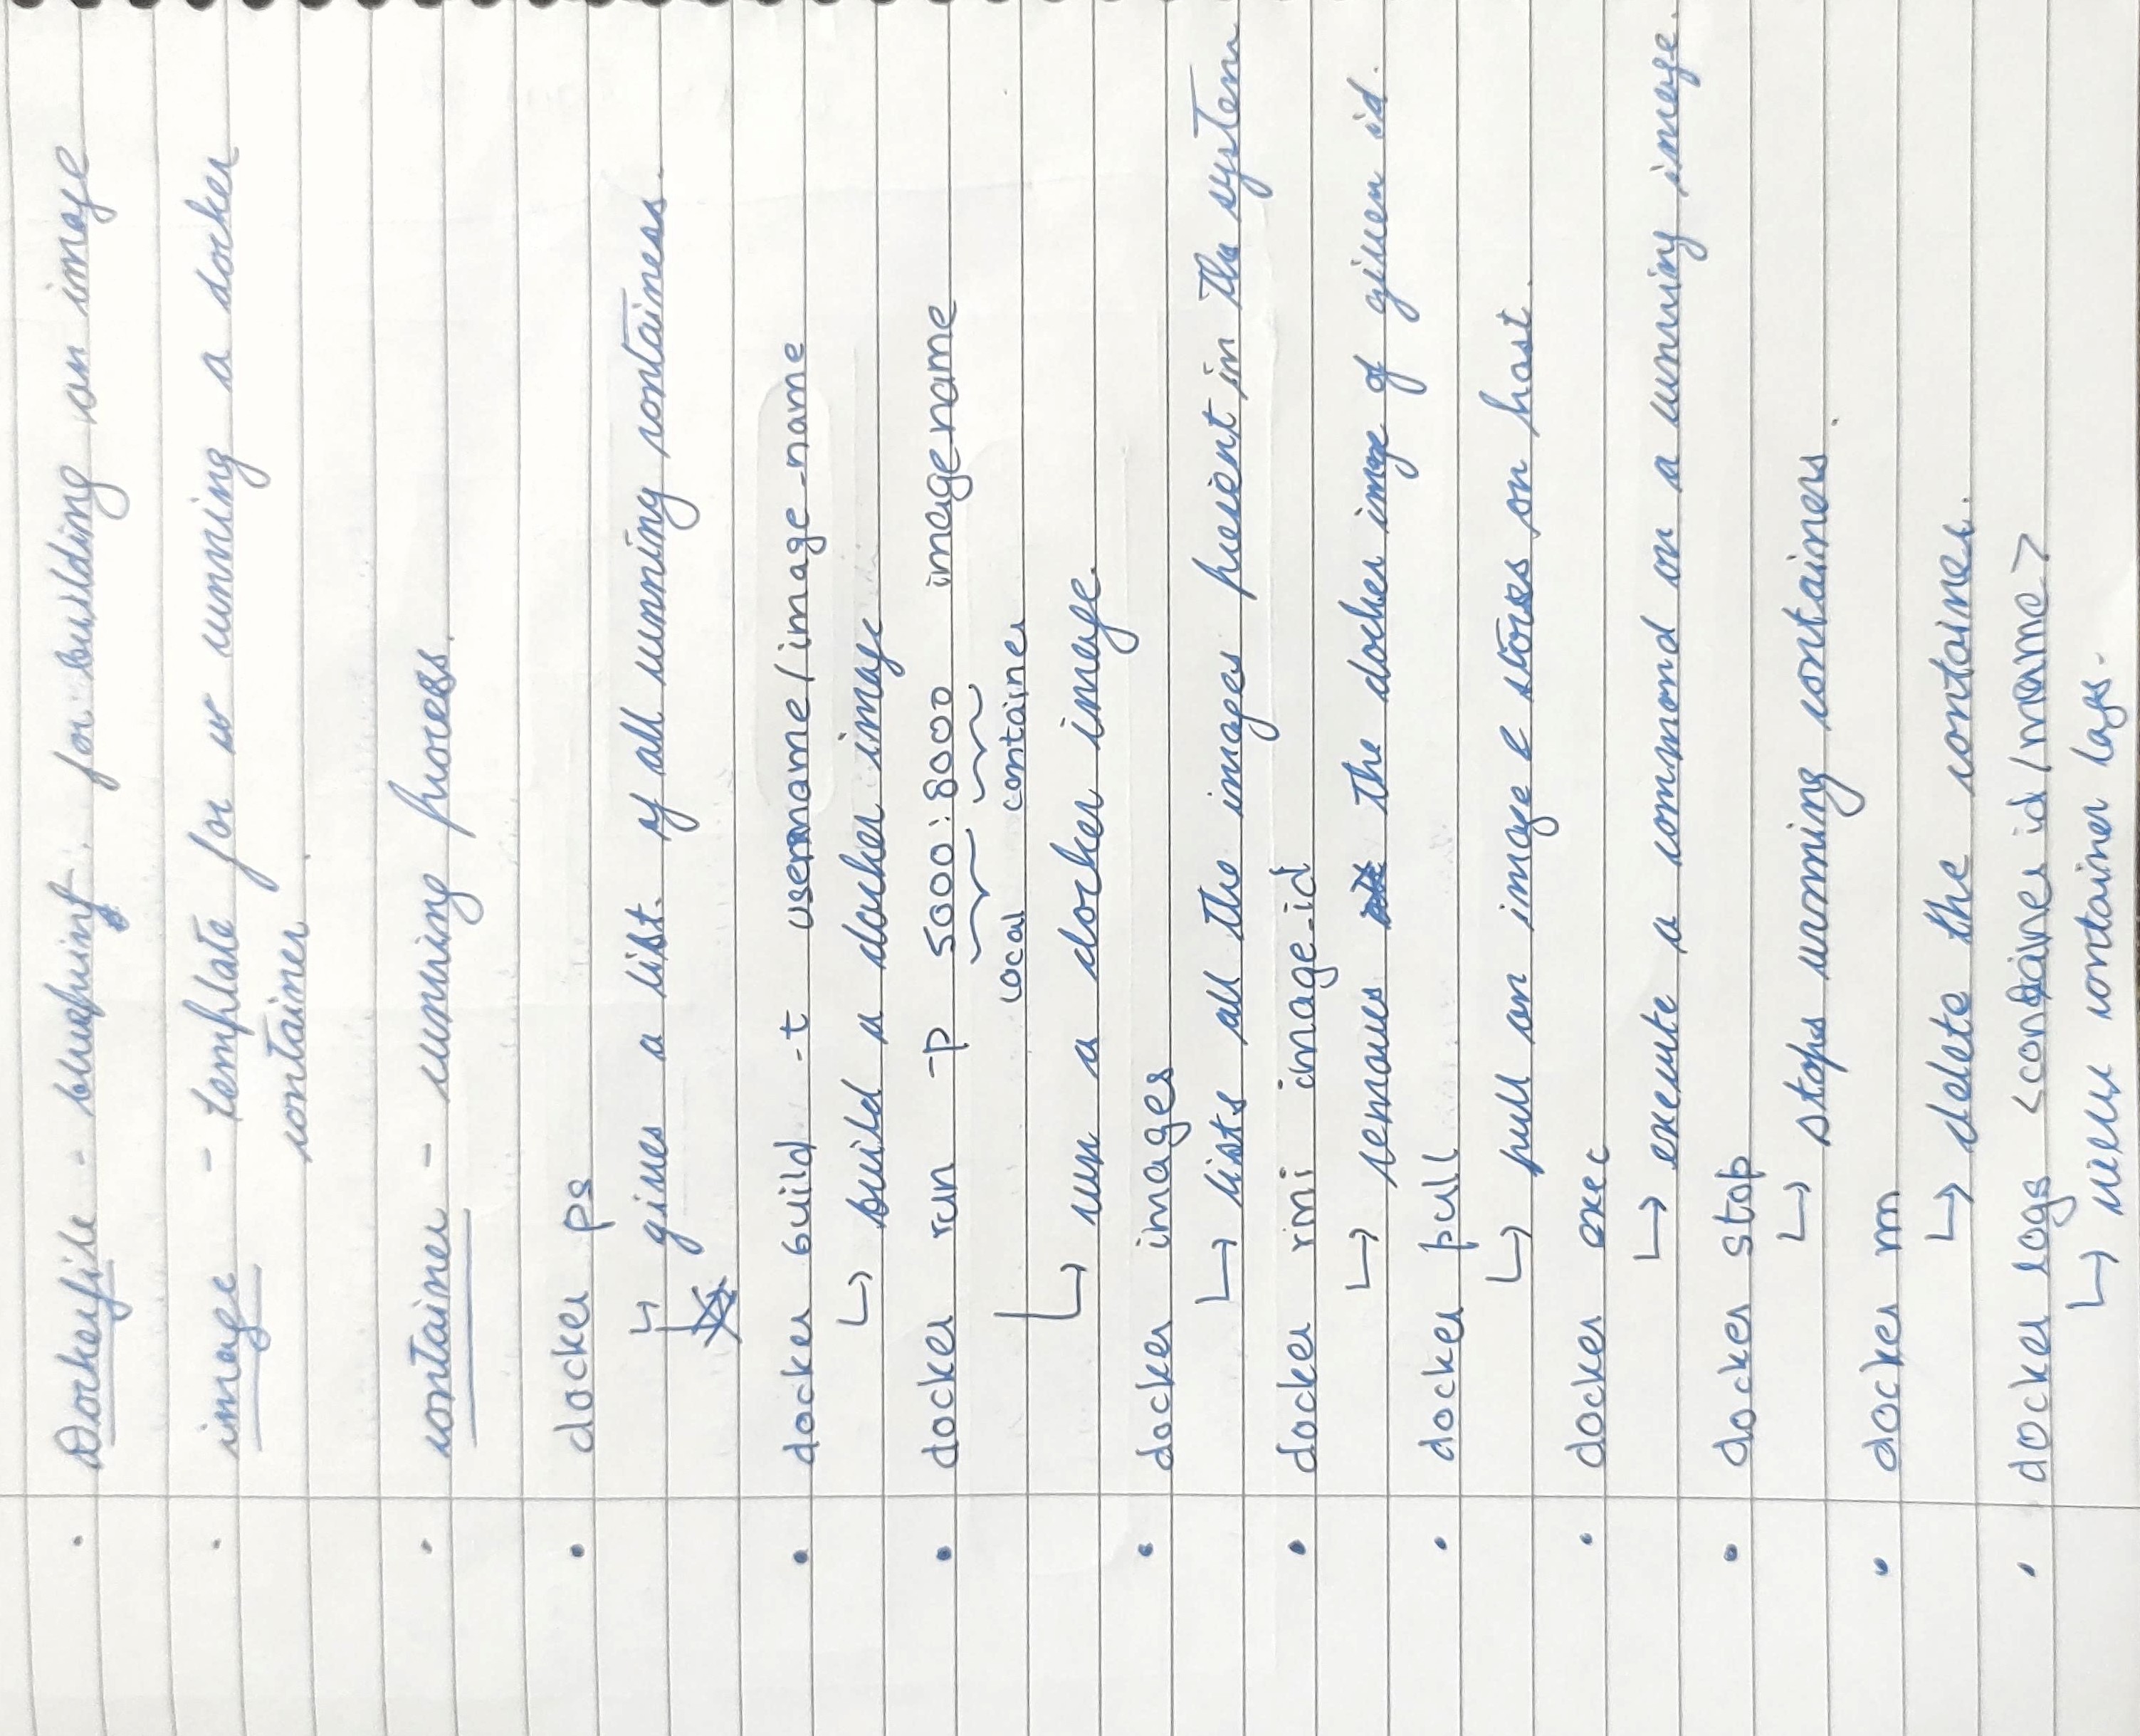 • Dockerfile - blueprint for building an image
• image - template for running a docker
container.
• container - running process.
• docker ps
↳ gives a list of all running containers.
• docker build -t username/image-name
↳ build a docker image
• docker run -p 5000:8000 imagename
local container
↳ run a docker image.
• docker images
↳ lists all the images present in the system
• docker rmi image-id
↳ removes the docker image of given id.
• docker pull
↳ pull an image & stores on host.
• docker exec
↳ execute a command on a running image.
• docker stop
↳ stops running containers.
• docker rm
↳ delete the container.
• docker logs <container id/name>
↳ view container logs.